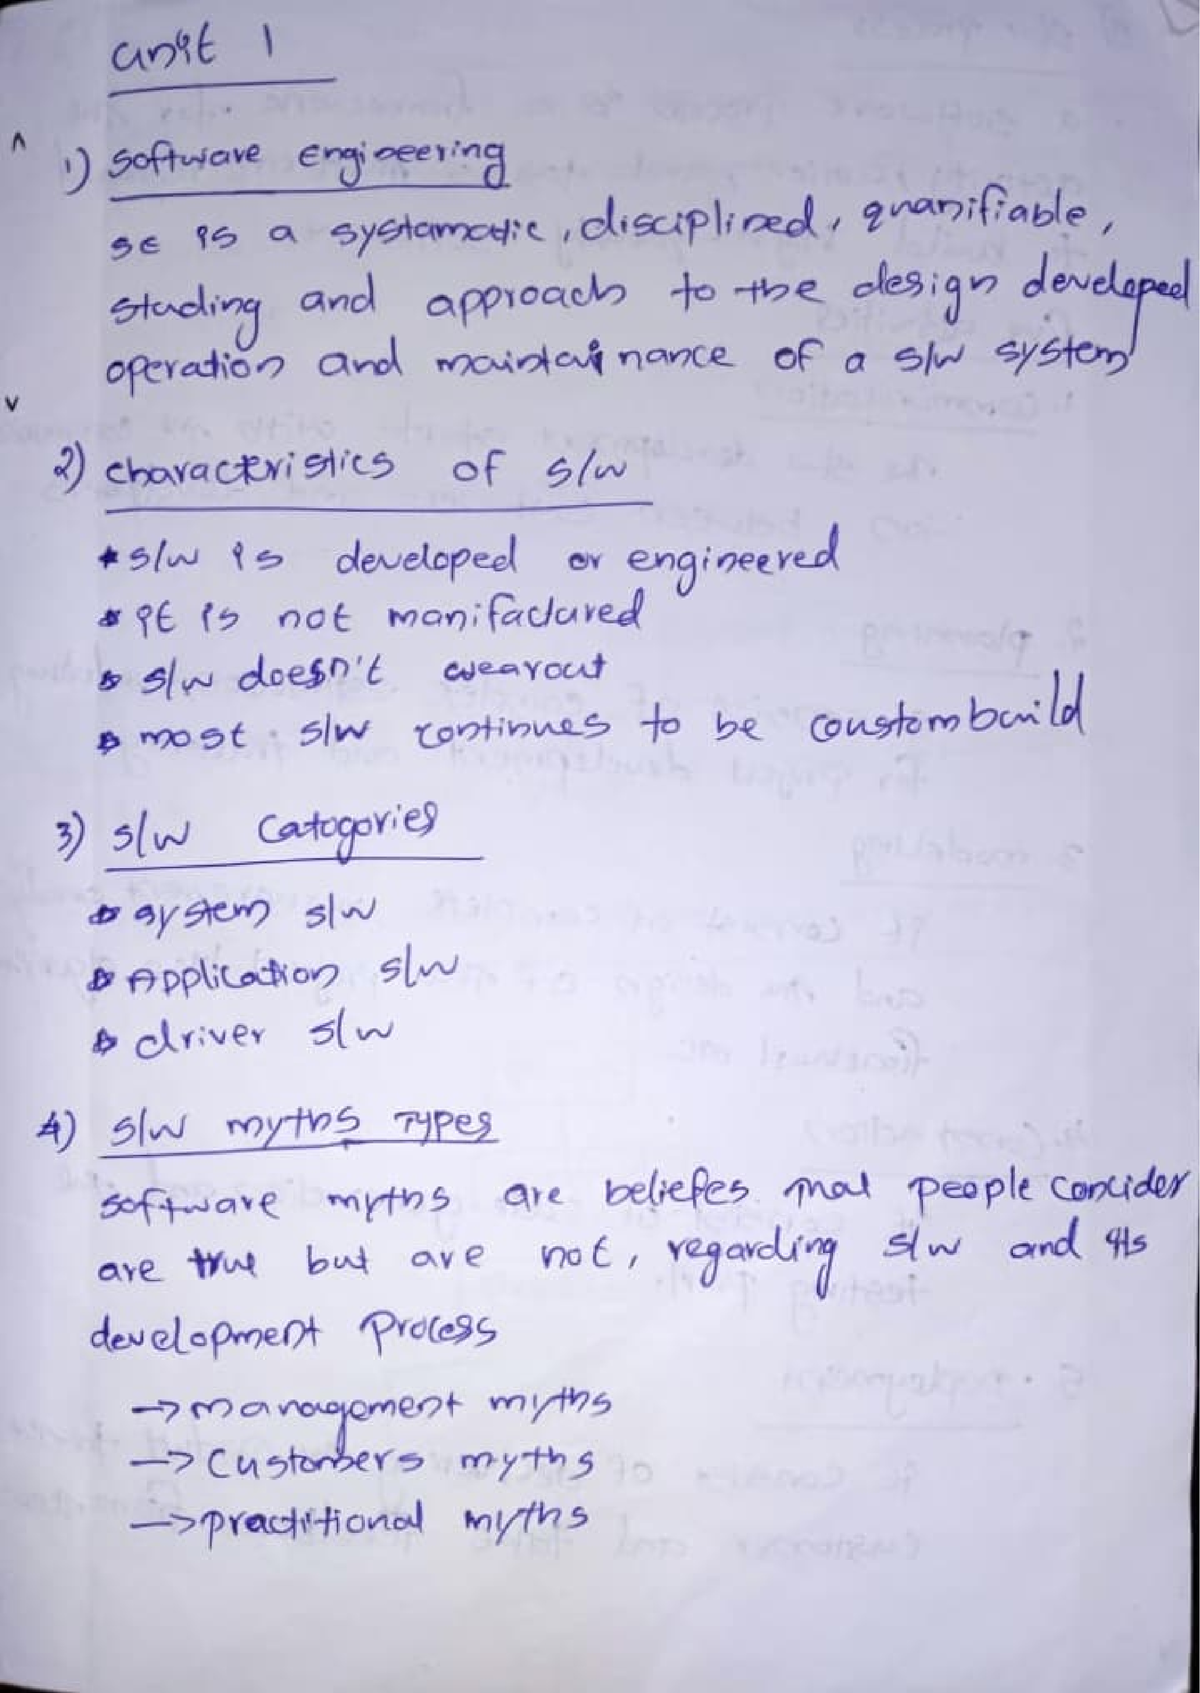 unit 1
1) software engineering
SE is a systamatic, disciplined, quanifiable,
stading and approach to the design developed
operation and maintainance of a s/w system
2) characteristics of s/w
* s/w is developed or engineered
* it is not manifactured
* s/w doesn't wearout
* most s/w continues to be coustombuild
3) s/w Catogories
* system s/w
* Application s/w
* driver s/w
4) s/w myths Types
software myths are beliefes that people concider
are true but are not, regarding s/w and its
development process
→ management myths
→ Customers myths
→ practitional myths